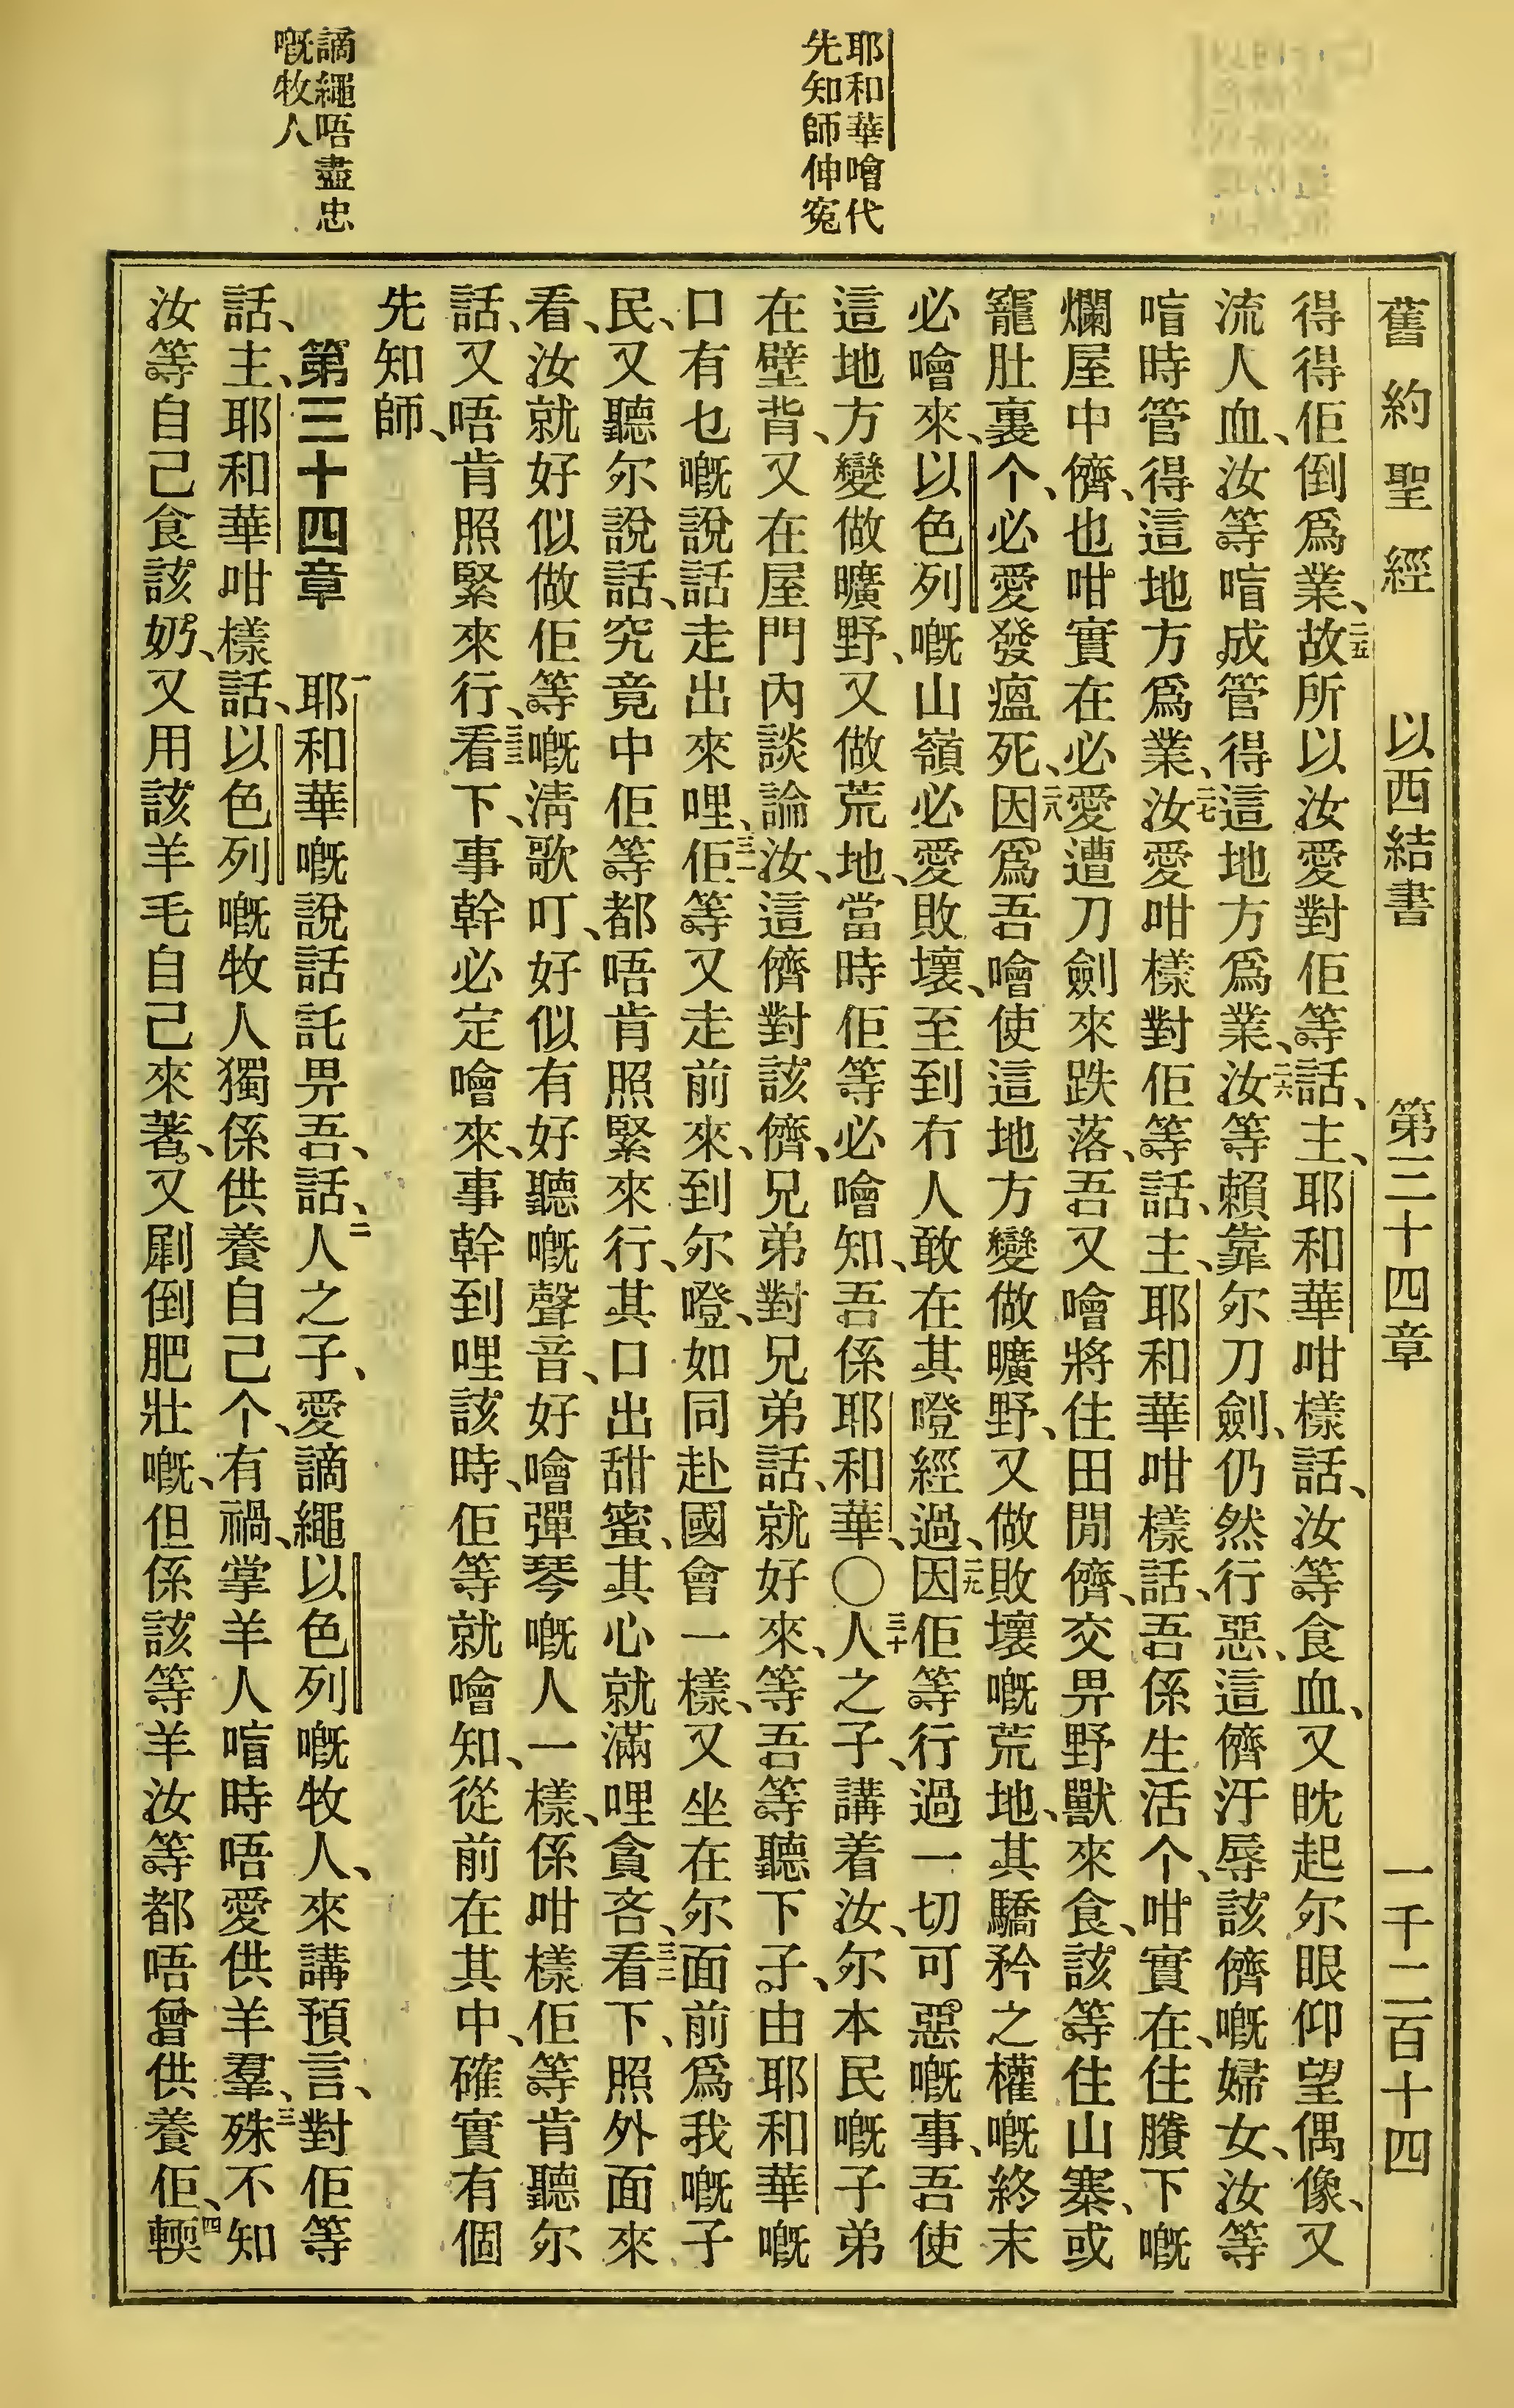 耶和華噲代
先知師伸寃
謫繩唔盡忠
嘅牧人
舊約聖經 以西結書 第三十四章 一千二百十四
得得佢倒爲業、二五故所以汝愛對佢等話、主、耶和華咁樣話、汝等食血、又眈起尔眼仰望偶像、又
流人血、汝等唁成管得這地方爲業、二六汝等賴靠尔刀劍、仍然行惡、這儕汙辱該儕嘅婦女、汝等
唁時管得這地方爲業、二七汝愛咁樣對佢等話、主、耶和華咁樣話、吾係生活个、咁實在、住賸下嘅
爛屋中儕、也咁實在必愛遭刀劍來跌落、吾又噲將住田閒儕、交畀野獸來食、該等住山寨、或
窿肚裏个、必愛發瘟死、二八因爲吾噲使這地方變做曠野、又做敗壞嘅荒地、其驕矜之權嘅終末
必噲來、以色列嘅山嶺必愛敗壞、至到冇人敢在其嶝經過、二九因佢等行過一切可惡嘅事、吾使
這地方變做曠野、又做荒地、當時佢等必噲知、吾係耶和華、〇三十人之子、講着汝、尔本民嘅子弟
在壁背、又在屋門內談論汝、這儕對該儕、兄弟對兄弟話、就好來、等吾等聽下子、由耶和華嘅
口有乜嘅說話走出來哩、三一佢等又走前來、到尔嶝、如同赴國會一樣、又坐在尔面前爲我嘅子
民、又聽尔說話、究竟中佢等都唔肯照緊來行、其口出甜蜜、其心就滿哩貪吝、三二看下、照外面來
看、汝就好似做佢等嘅淸歌叮、好似有好聽嘅聲音、好噲彈琴嘅人一樣、係咁樣佢等肯聽尔
話、又唔肯照緊來行、三三看下、事幹必定噲來、事幹到哩該時、佢等就噲知、從前在其中、確實有個
先知師、
第三十四章 一耶和華嘅說話託畀吾、話、二人之子、愛謫繩以色列嘅牧人、來講預言、對佢等
話、主、耶和華咁樣話、以色列嘅牧人獨係供養自己个、有禍、掌羊人唁時唔愛供羊羣、三殊不知
汝等自己食該奶、又用該羊毛自己來著、又劘倒肥壯嘅、但係該等羊汝等都唔曾供養佢、四輭